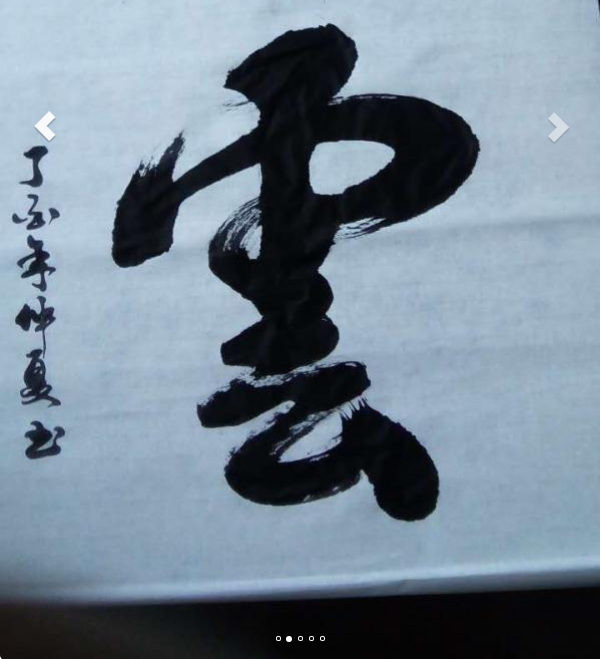 雲
丁酉年仲夏书